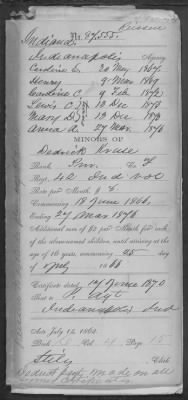 Indiana. No. 87,555.
Indianapolis Agency
Caroline C. 20 May 1867.
Henry 9 Mar 1869
Caroline C. 9 Feb. 1873
Lewis C. 12 Dec 1873
Mary D. 12 Dec 1873
Anna A. 27 Mar. 1876
MINORS OF
Dedrick Kruse
Rank Priv. Co. F
Regt. 42 Ind vol
Rate per Month, $ 8.
Commencing 18 June 1866.
Ending 27 Mar 1876
Additional sum of $2 per Month for each
of the above-named children, until arriving at the
age of 16 years, commencing 25 day
of July 1866
Certificate dated 14 June 1870
Indianapolis Ind
Act July 14, 1862.
Book Vol. Page 15
Clerk
Deduct pay made on all